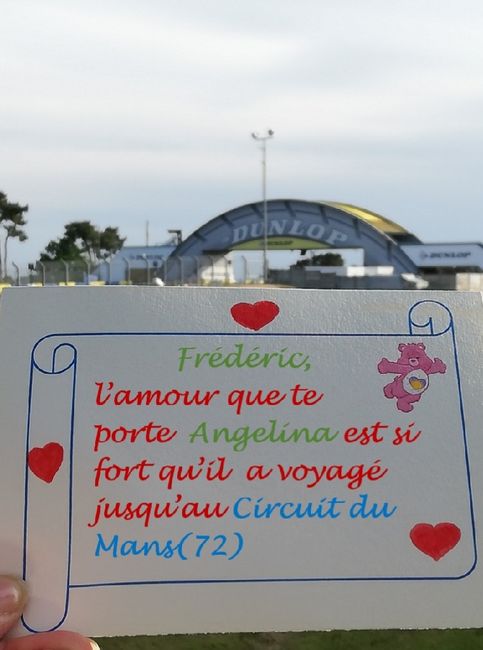 DUNLOP
DUNLOP
Frédéric,
l'amour que te
porte Angelina est si
fort qu'il a voyagé
jusqu'au Circuit du
Mans(72)